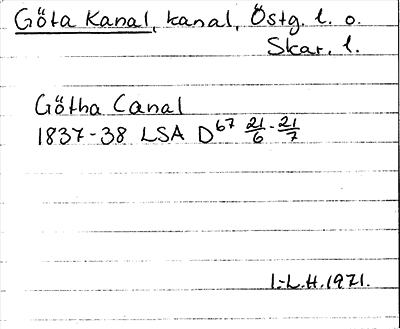 Göta Kanal, kanal, Östg. l. o.
Skar. l.
Götha Canal
1837-38 LSA D67 21/6-21/7
I-L.H.1971.